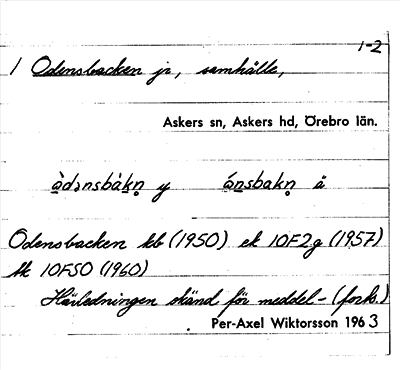 1-2
1 Odensbacken jr, samhälle,
Askers sn, Askers hd, Örebro län.
y å
Odensbacken kb (1950) ek 10F2g (1957)
10FSO (1960)
Härledningen okänd för meddel- (fork.)
Per-Axel Wiktorsson 1963